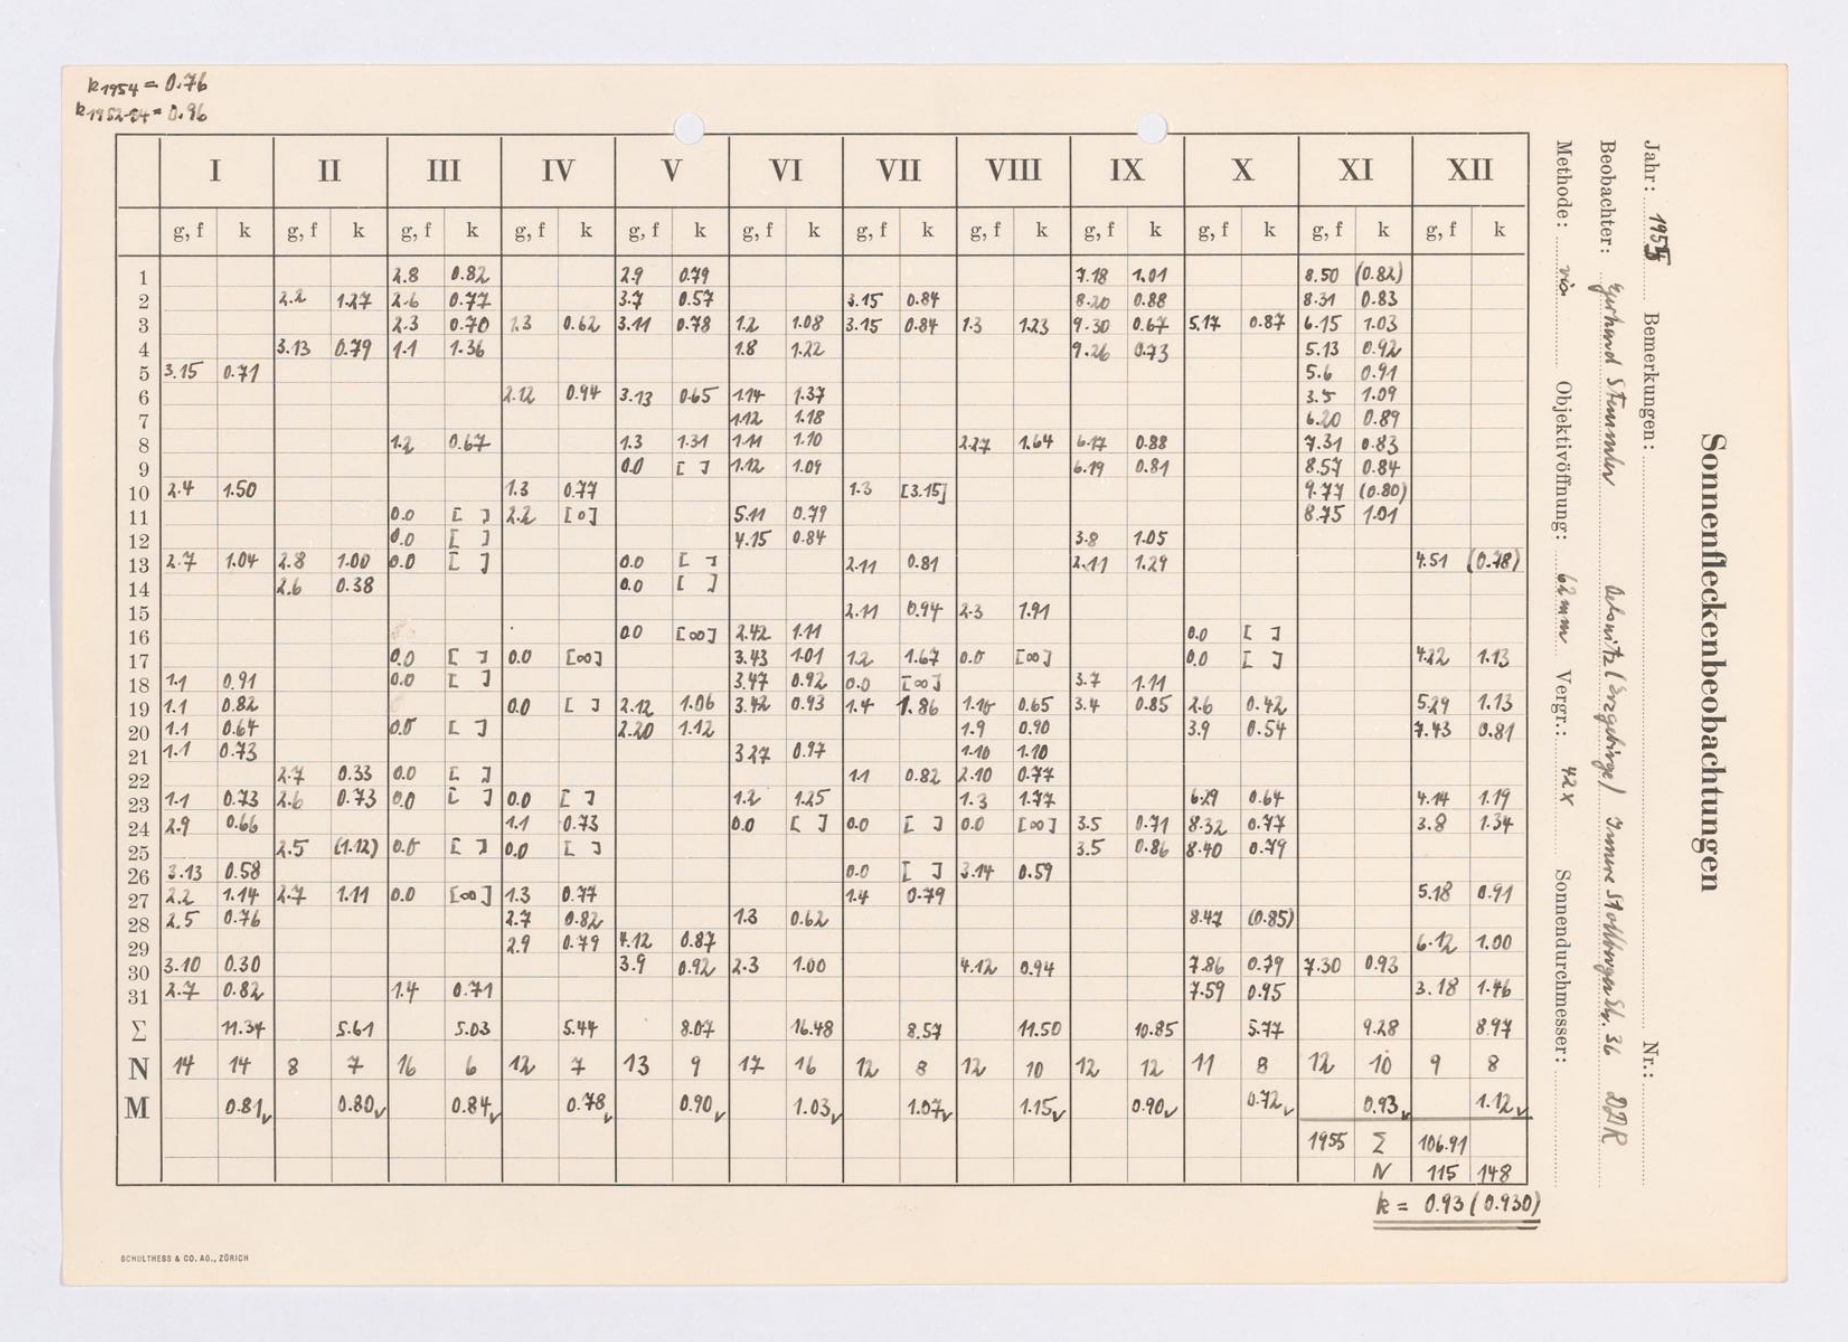 k1954 = 0.76
k1952-54 = 0.96
Sonnenfleckenbeobachtungen
Jahr: 1955 Bemerkungen: Nr.:
Beobachter: Gerhard Stemmler (Erzgebirge) Innere Stollberger Str. 36 DDR
Methode: vis. Objektivöffnung: 62 mm Vergr.: 42 x Sonnendurchmesser:
I II III IV V VI VII VIII IX X XI XII
g, f k g, f k g, f k g, f k g, f k g, f k g, f k g, f k g, f k g, f k g, f k g, f k
1 2.8 0.82 2.9 0.79 7.18 1.01 8.50 (0.82)
2 2.2 1.27 2.6 0.77 3.7 0.57 3.15 0.84 8.20 0.88 8.31 0.83
3 2.3 0.70 1.3 0.62 3.11 0.78 1.2 1.08 3.15 0.84 1.3 1.23 9.30 0.67 5.17 0.87 6.15 1.03
4 3.13 0.79 1.1 1.36 1.8 1.22 9.26 0.73 5.13 0.92
5 3.15 0.71 5.6 0.91
6 2.12 0.94 3.13 0.65 1.14 1.37 3.5 1.09
7 1.12 1.18 6.20 0.89
8 1.2 0.67 1.3 1.31 1.11 1.10 2.27 1.64 6.17 0.88 7.31 0.83
9 0.0 [ ] 1.12 1.09 6.19 0.81 8.57 0.84
10 2.4 1.50 1.3 0.77 1.3 [3.15] 9.77 (0.80)
11 0.0 [ ] 2.2 [0] 5.11 0.79 8.75 1.01
12 0.0 [ ] 4.15 0.84 3.8 1.05
13 2.7 1.04 2.8 1.00 0.0 [ ] 0.0 [ ] 2.11 0.81 2.11 1.29 4.51 (0.78)
14 2.6 0.38 0.0 [ ]
15 2.11 0.94 2.3 1.91
16 0.0 [∞] 2.42 1.11 0.0 [ ]
17 0.0 [ ] 0.0 [∞] 3.43 1.01 1.2 1.67 0.0 [∞] 0.0 [ ] 4.22 1.13
18 1.1 0.91 0.0 [ ] 3.47 0.92 0.0 [∞] 3.7 1.11
19 1.1 0.82 0.0 [ ] 2.12 1.06 3.42 0.93 1.4 1.86 0.65 3.4 0.85 2.6 0.42 5.29 1.13
20 1.1 0.64 0.0 [ ] 2.20 1.12 1.9 0.90 3.9 0.54 7.43 0.81
21 1.1 0.73 3.27 0.97 1.10 1.10
22 2.7 0.33 0.0 [ ] 1.1 0.82 2.10 0.77
23 1.1 0.73 2.6 0.73 0.0 [ ] 0.0 [ ] 1.2 1.25 1.3 1.77 6.29 0.64 4.14 1.19
24 2.9 0.66 1.1 0.73 0.0 [ ] 0.0 [ ] 0.0 [∞] 3.5 0.71 8.32 0.77 3.8 1.34
25 2.5 (1.12) 0.0 [ ] 0.0 [ ] 3.5 0.86 8.40 0.79
26 3.13 0.58 0.0 [ ] 3.14 0.59
27 2.2 1.14 2.7 1.11 0.0 [∞] 1.3 0.77 1.4 0.79 5.18 0.91
28 2.5 0.76 2.7 0.82 1.3 0.62 8.47 (0.85)
29 2.9 0.79 4.12 0.87 6.12 1.00
30 3.10 0.30 3.9 0.92 2.3 1.00 4.12 0.94 7.86 0.79 7.30 0.93
31 2.7 0.82 1.4 0.71 7.59 0.95 3.18 1.46
Σ 11.34 5.61 5.03 5.44 8.07 16.48 8.57 11.50 10.85 5.77 9.28 8.97
N 14 14 8 7 16 6 12 7 13 9 17 16 12 8 12 10 12 12 11 8 12 10 9 8
M 0.81 0.80 0.84 0.78 0.90 1.03 1.07 1.15 0.90 0.72 0.93 1.12
1955 Σ 106.91
N 115 148
k = 0.93 (0.930)
SCHULTHESS & CO. AG., ZÜRICH